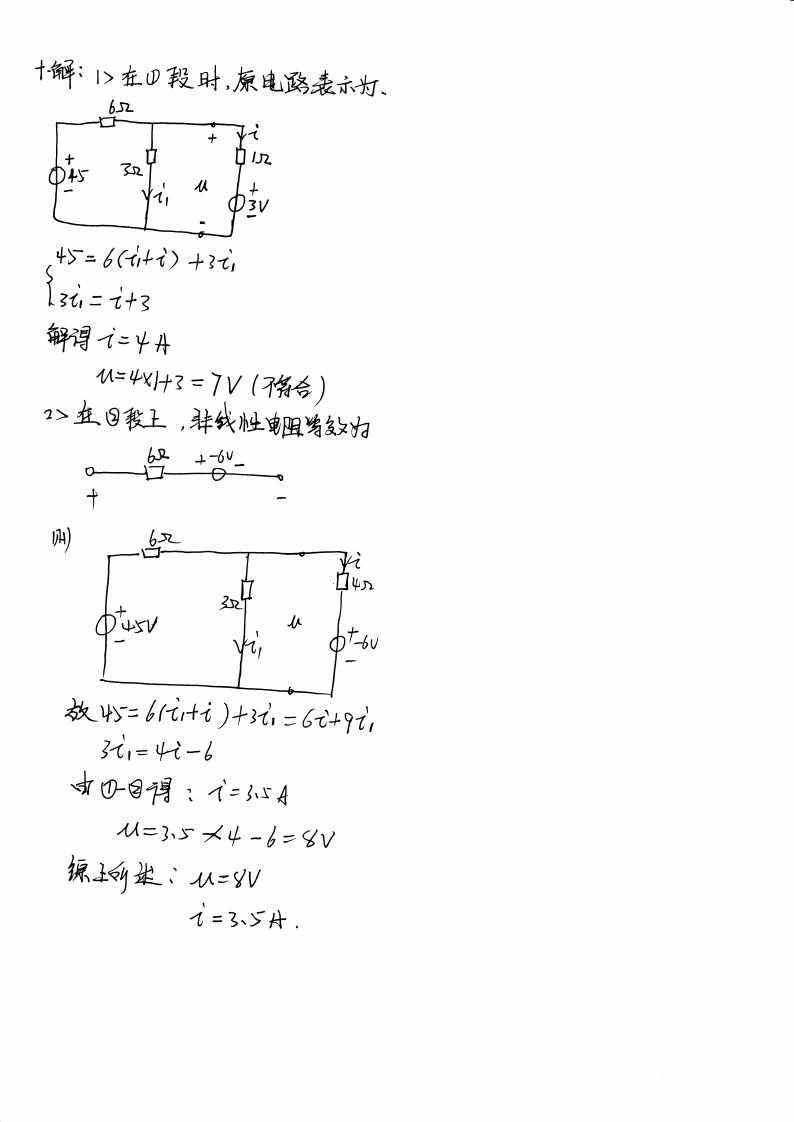 十.解: 1> 在①段时,原电路表示为、
6Ω
+ i
+ 45 - 3Ω i₁ u 1Ω
+ 3V -
-
45=6(i₁+i)+3i₁
3i₁=i+3
解得 i=4A
u=4×1+3=7V (不符合)
2> 在②段上,非线性电阻等效为
6Ω + -6V -
+ -
则
6Ω
i
+ 45V - 3Ω i₁ u 4Ω
+ -6V -
故 45=6(i₁+i)+3i₁=6i+9i₁
3i₁=4i-6
由①-②得: i=3.5A
u=3.5×4-6=8V
综上所述: u=8V
i=3.5A.